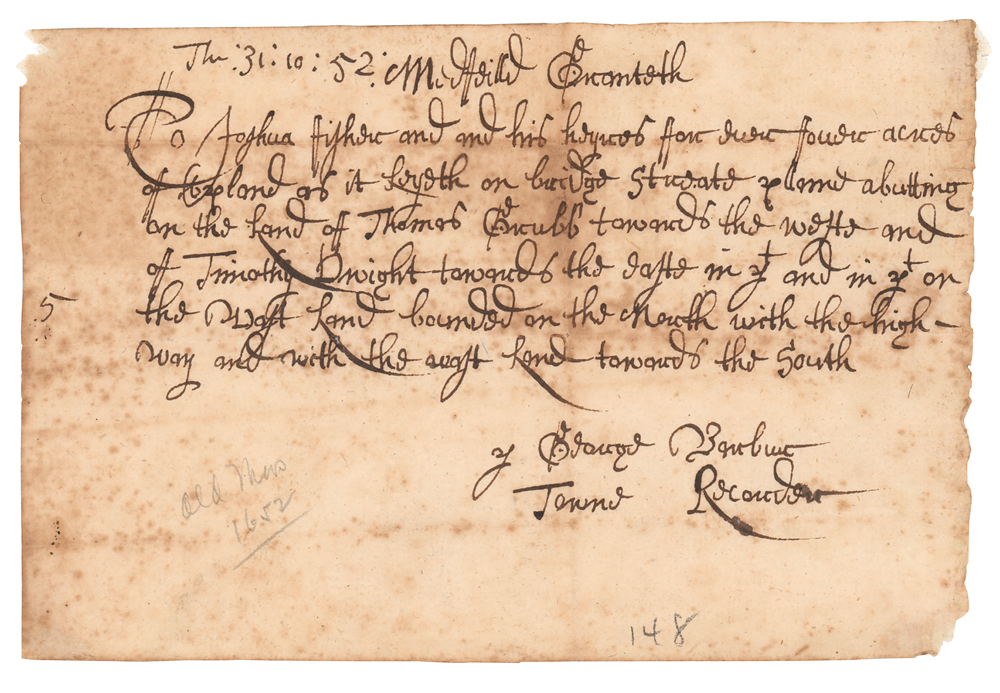 The :31:10:52: Medfeilld Granteth
To Joshua fisher and and his heyres for euer fouer acres
of vpland as it Lyeth on bridge Streate plaine abutting
on the Land of Thomas Grubb towards the weste and
of Timothy Dwight towards the easte in pt and in pt on
the Wast Land bounded on the North with the high-
way and with the wast Land towards the South
5
p George Barbur
Towne Recorder
Old Mss
1652
148